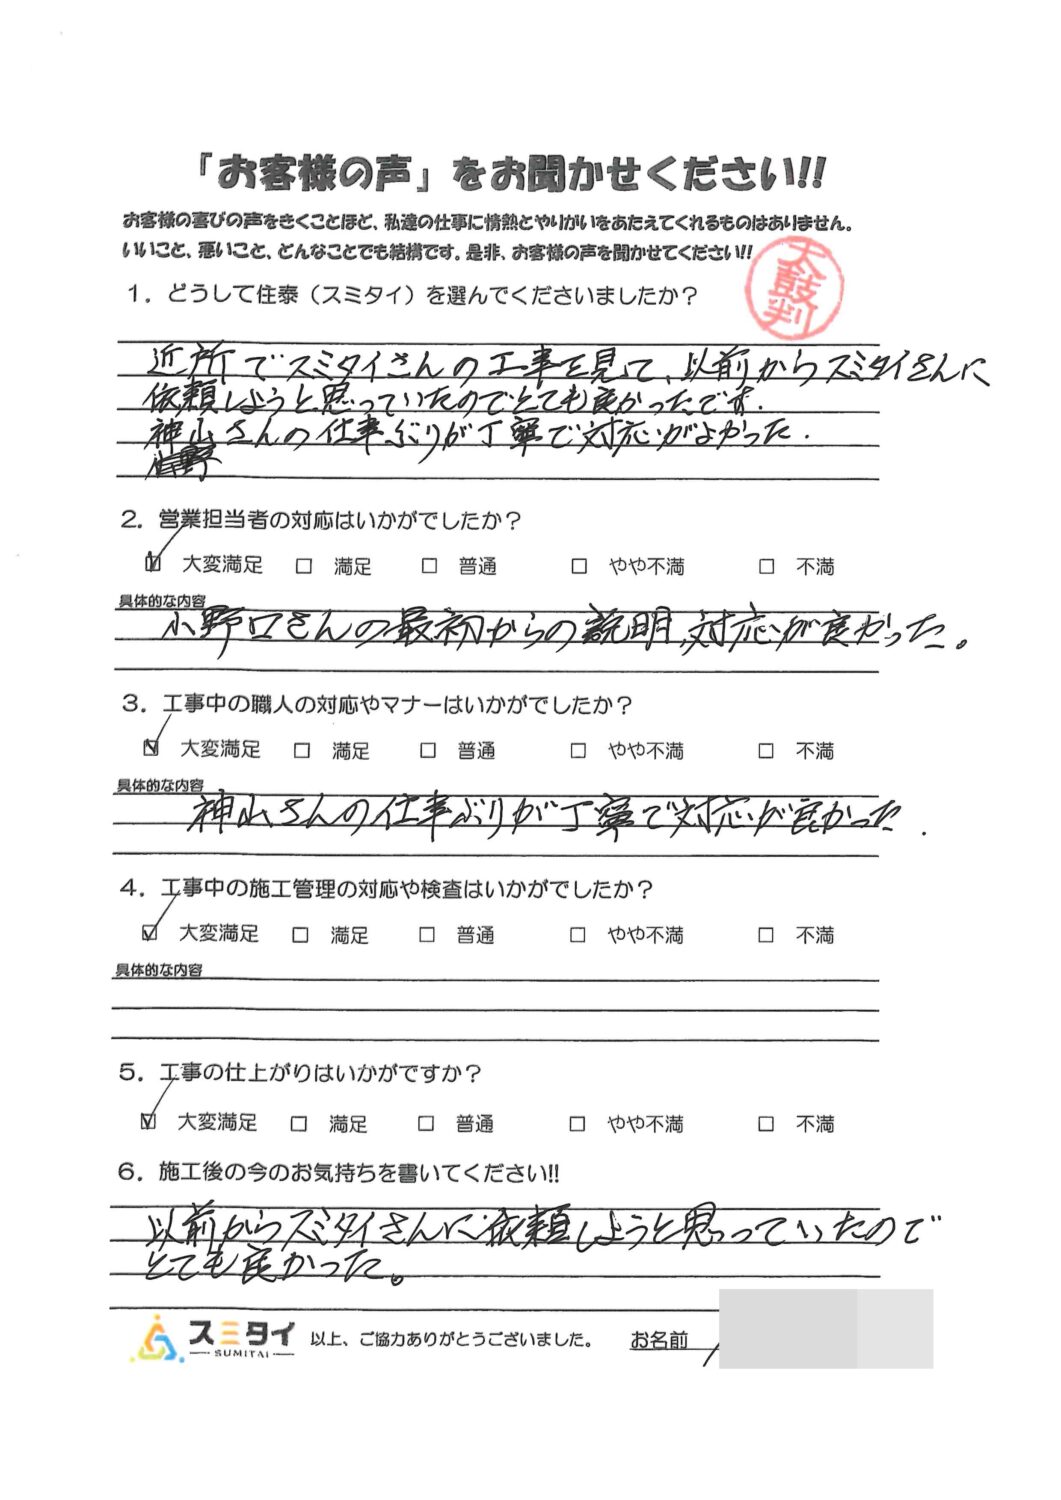 「お客様の声」をお聞かせください!!
お客様の喜びの声をきくことほど、私達の仕事に情熱とやりがいをあたえてくれるものはありません。
いいこと、悪いこと、どんなことでも結構です。是非、お客様の声を聞かせてください!!
太鼓判
1．どうして住泰（スミタイ）を選んでくださいましたか？
近所でスミタイさんの工事を見て、以前からスミタイさんに
依頼しようと思っていたのでとても良かったです.
神山さんの仕事ぶりが丁寧で対応がよかった.
2．営業担当者の対応はいかがでしたか？
☑ 大変満足 □ 満足 □ 普通 □ やや不満 □ 不満
具体的な内容
小野口さんの最初からの説明、対応が良かった。
3．工事中の職人の対応やマナーはいかがでしたか？
☑ 大変満足 □ 満足 □ 普通 □ やや不満 □ 不満
具体的な内容
神山さんの仕事ぶりが丁寧で対応が良かった.
4．工事中の施工管理の対応や検査はいかがでしたか？
☑ 大変満足 □ 満足 □ 普通 □ やや不満 □ 不満
具体的な内容
5．工事の仕上がりはいかがですか？
☑ 大変満足 □ 満足 □ 普通 □ やや不満 □ 不満
6．施工後の今のお気持ちを書いてください!!
以前からスミタイさんに依頼しようと思っていたので
とても良かった。
スミタイ 以上、ご協力ありがとうございました。 お名前
SUMITAI